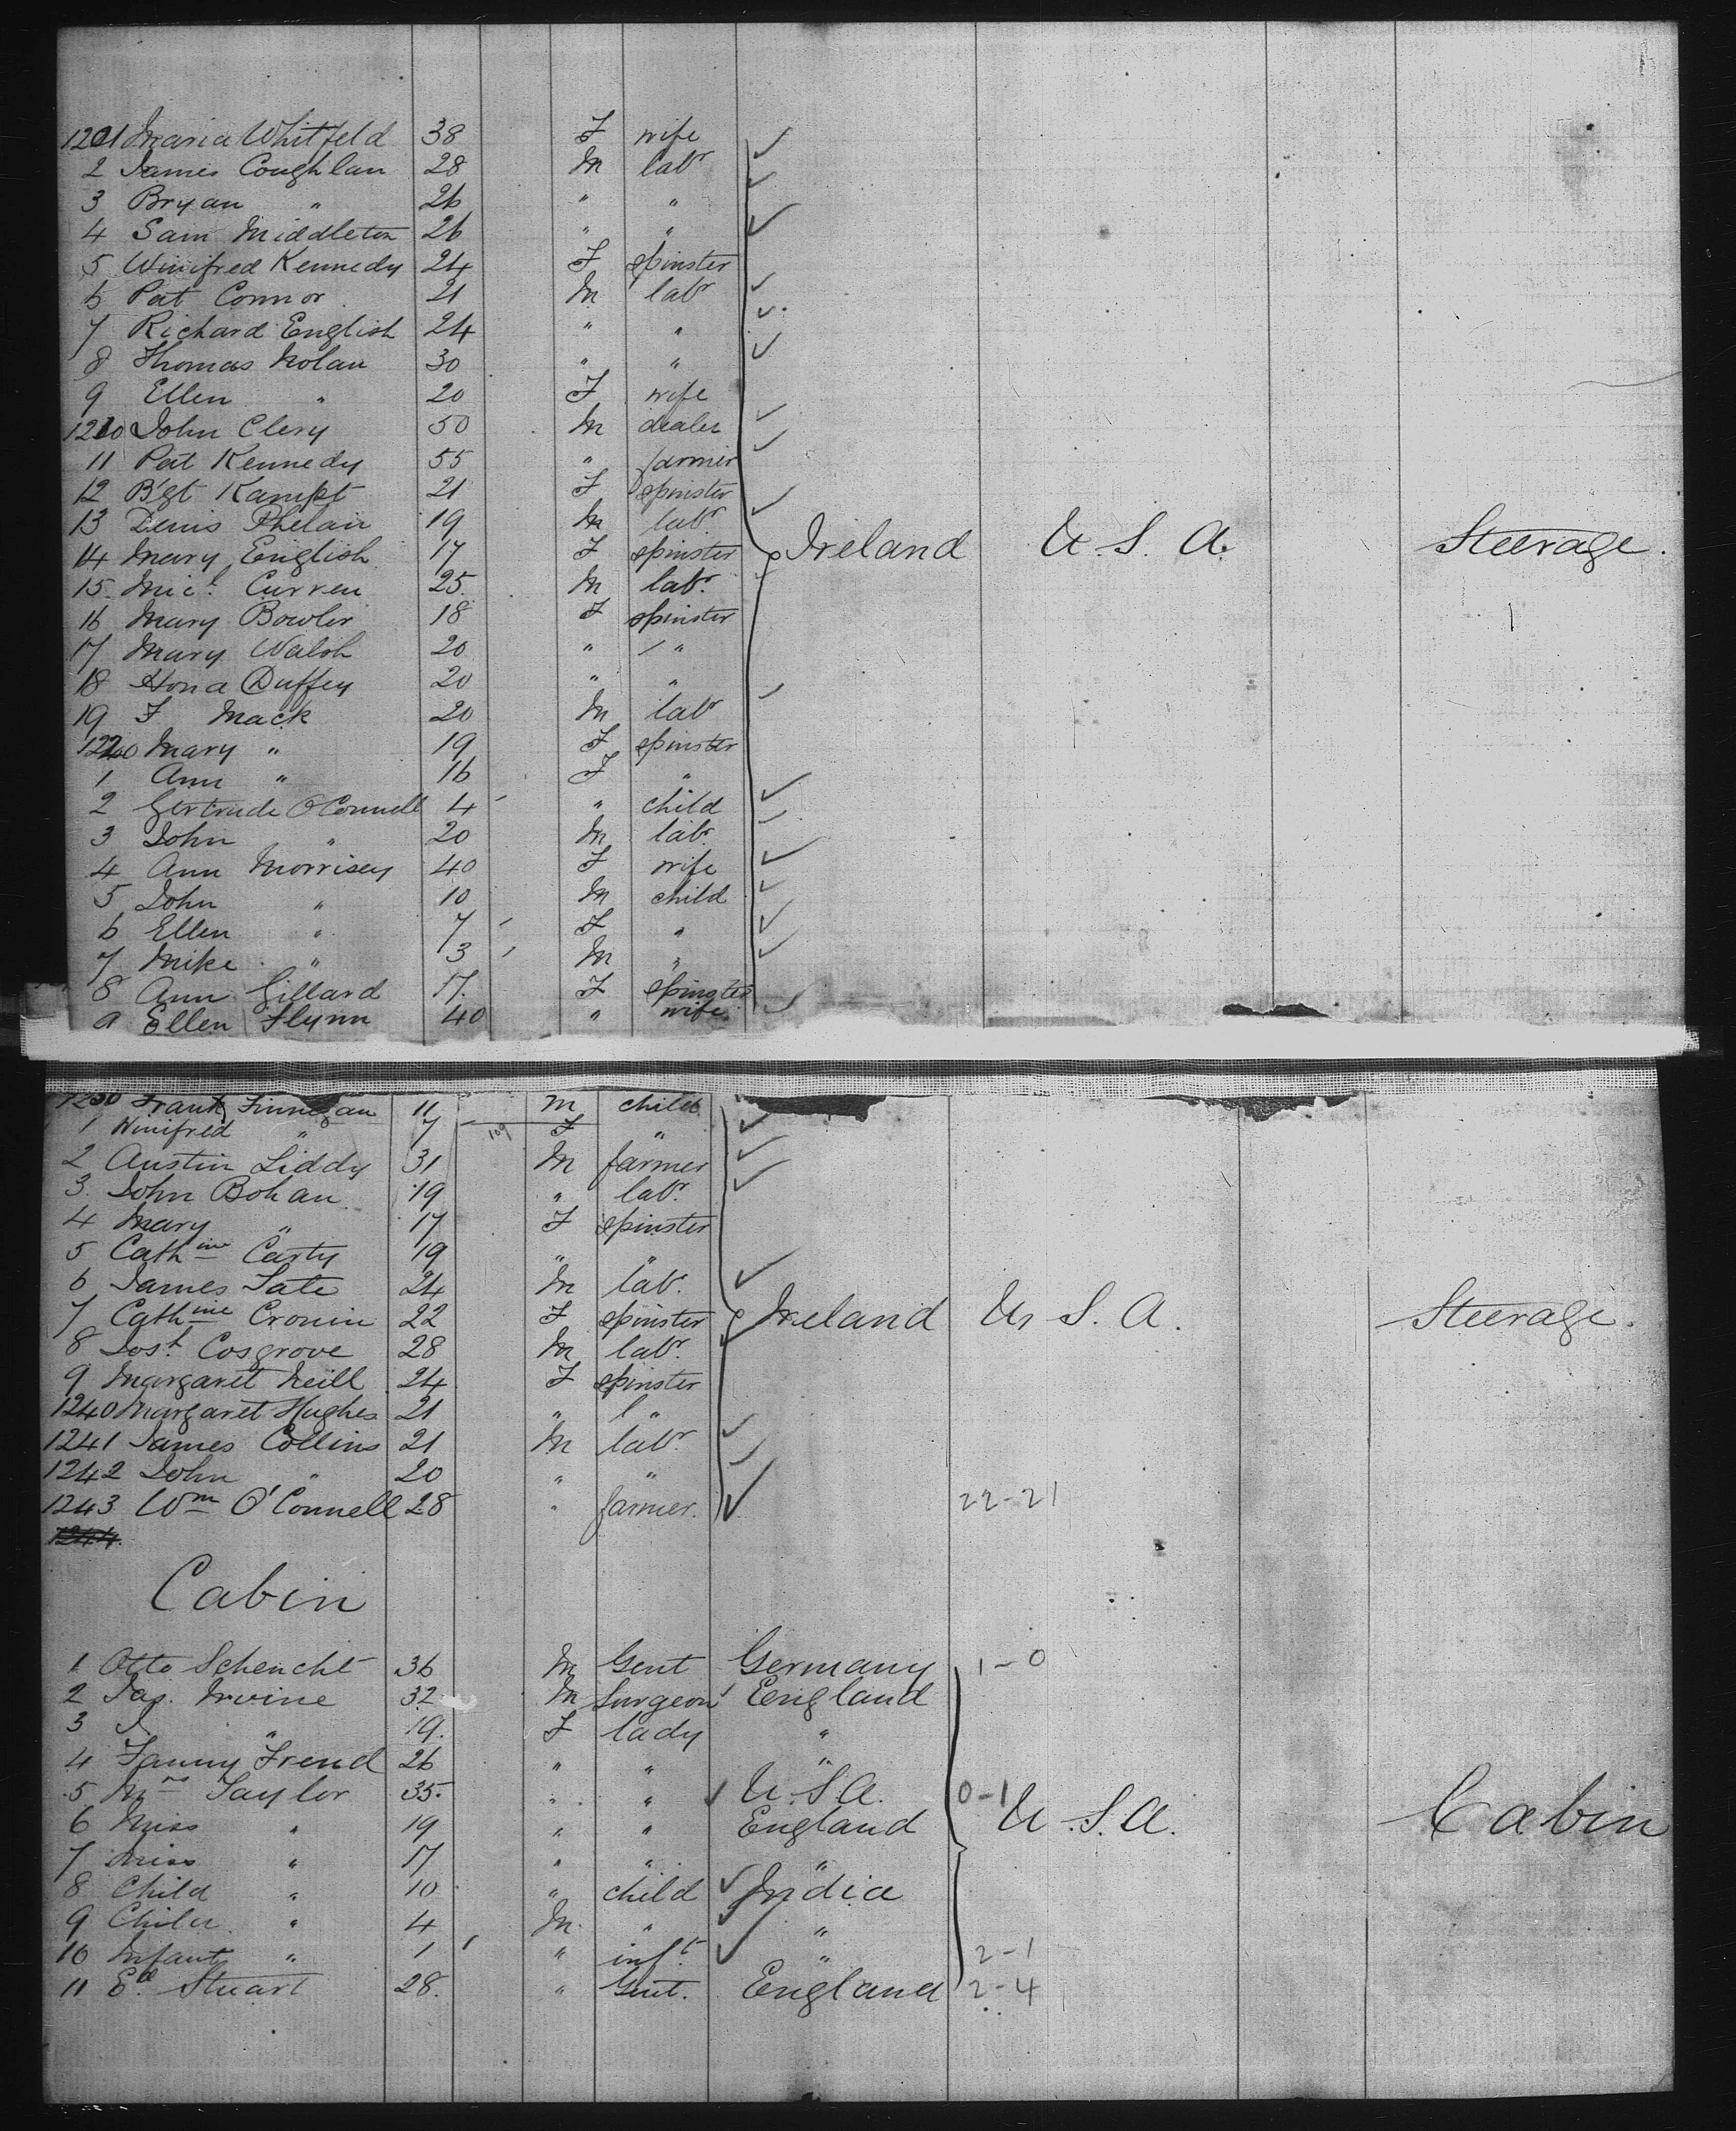 1201 Maria Whitfeld 38 F wife
2 James Coughlan 28 M labr
3 Bryan " 26 " "
4 Sam Middleton 26 " "
5 Winifred Kennedy 24 F spinster
6 Pat Connor 21 M labr
7 Richard English 24 " "
8 Thomas Nolan 30 " "
9 Ellen " 20 F wife
1210 John Clery 50 M dealer
11 Pat Kennedy 55 " farmer
12 B'gt Kampt 21 F spinster
13 Denis Phelan 19 M labr
14 Mary English 17 F spinster Ireland U.S.A. Steerage.
15 Micl. Curren 25 M labr.
16 Mary Bowler 18 F spinster
17 Mary Walsh 20 " "
18 Hona Duffey 20 " "
19 F Mack 20 M labr
1220 Mary " 19 F spinster
1 Ann " 16 F "
2 Gertrude O'Connell 4 " child
3 John " 20 M labr
4 Ann Morrisey 40 F wife
5 John " 10 M child
6 Ellen " 7 F "
7 Mike " 3 M "
8 Ann Gillard 17. F spinster
9 Ellen Flynn 40 " wife
1230 Frank Finnegan 11 M child
1 Winifred " 7 109 F "
2 Austin Liddy 31 M farmer
3 John Bohan 19 " labr.
4 Mary " 17 F spinster
5 Cathine Carty 19 " "
6 James Tate 24 M labr.
7 Cathine Cronin 22 F spinster Ireland U.S.A. Steerage.
8 Josh Cosgrove 28 M labr.
9 Margaret Neill 24 F spinster
1240 Margaret Hughes 21 " "
1241 James Collins 21 M labr.
1242 John " 20 " "
1243 Wm O'Connell 28 " farmer. 22-21
1244
Cabin
1 Otto Schencht 36 M Gent Germany 1-0
2 Jas. Irvine 32 M Surgeon England
3 J " 19. F lady "
4 Fanny Frend 26 " " "
5 Mrs Taylor 35. " " U.S.A. 0-1
6 Miss " 19 " " England U.S.A. Cabin
7 Miss " 17 " " "
8 Child " 10 " child India
9 Child " 4 M. " "
10 Infant " 1 " inft " 2-1
11 Ed. Stuart 28. " Gent. England 2-4